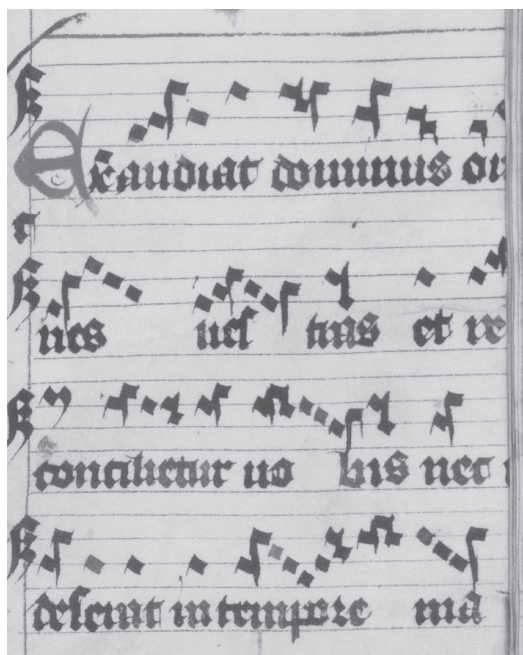 Exaudiat dominus or
nes ves tras et re
concilietur uo bis nec
deserat in tempore ma